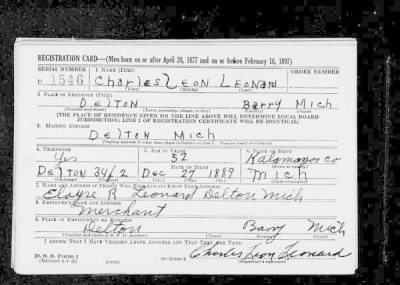 REGISTRATION CARD—(Men born on or after April 28, 1877 and on or before February 16, 1897)
SERIAL NUMBER 1. NAME (Print) ORDER NUMBER
U 1546 Charles Leon Leonard
(First) (Middle) (Last)
2. PLACE OF RESIDENCE (Print)
Delton Barry Mich
(Number and street) (Town, township, village, or city) (County) (State)
[THE PLACE OF RESIDENCE GIVEN ON THE LINE ABOVE WILL DETERMINE LOCAL BOARD
JURISDICTION; LINE 2 OF REGISTRATION CERTIFICATE WILL BE IDENTICAL]
3. MAILING ADDRESS
Delton Mich
[Mailing address if other than place indicated on line 2. If same insert word same]
4. TELEPHONE 5. AGE IN YEARS 6. PLACE OF BIRTH
Yes 52 Kalamazoo co
DATE OF BIRTH
Delton 34F2 Dec 27 1889 Mich
(Exchange) (Number) (Mo.) (Day) (Yr.) (State or country)
7. NAME AND ADDRESS OF PERSON WHO WILL ALWAYS KNOW YOUR ADDRESS
R Leonard Delton Mich
8. EMPLOYER'S NAME AND ADDRESS
Merchant
9. PLACE OF EMPLOYMENT OR BUSINESS
Delton Barry Mich
(Number and street or R. F. D. number) (Town) (County) (State)
I AFFIRM THAT I HAVE VERIFIED ABOVE ANSWERS AND THAT THEY ARE TRUE.
D. S. S. Form 1
(Revised 4-1-42) (over) Charles Leon Leonard
(Registrant's signature)